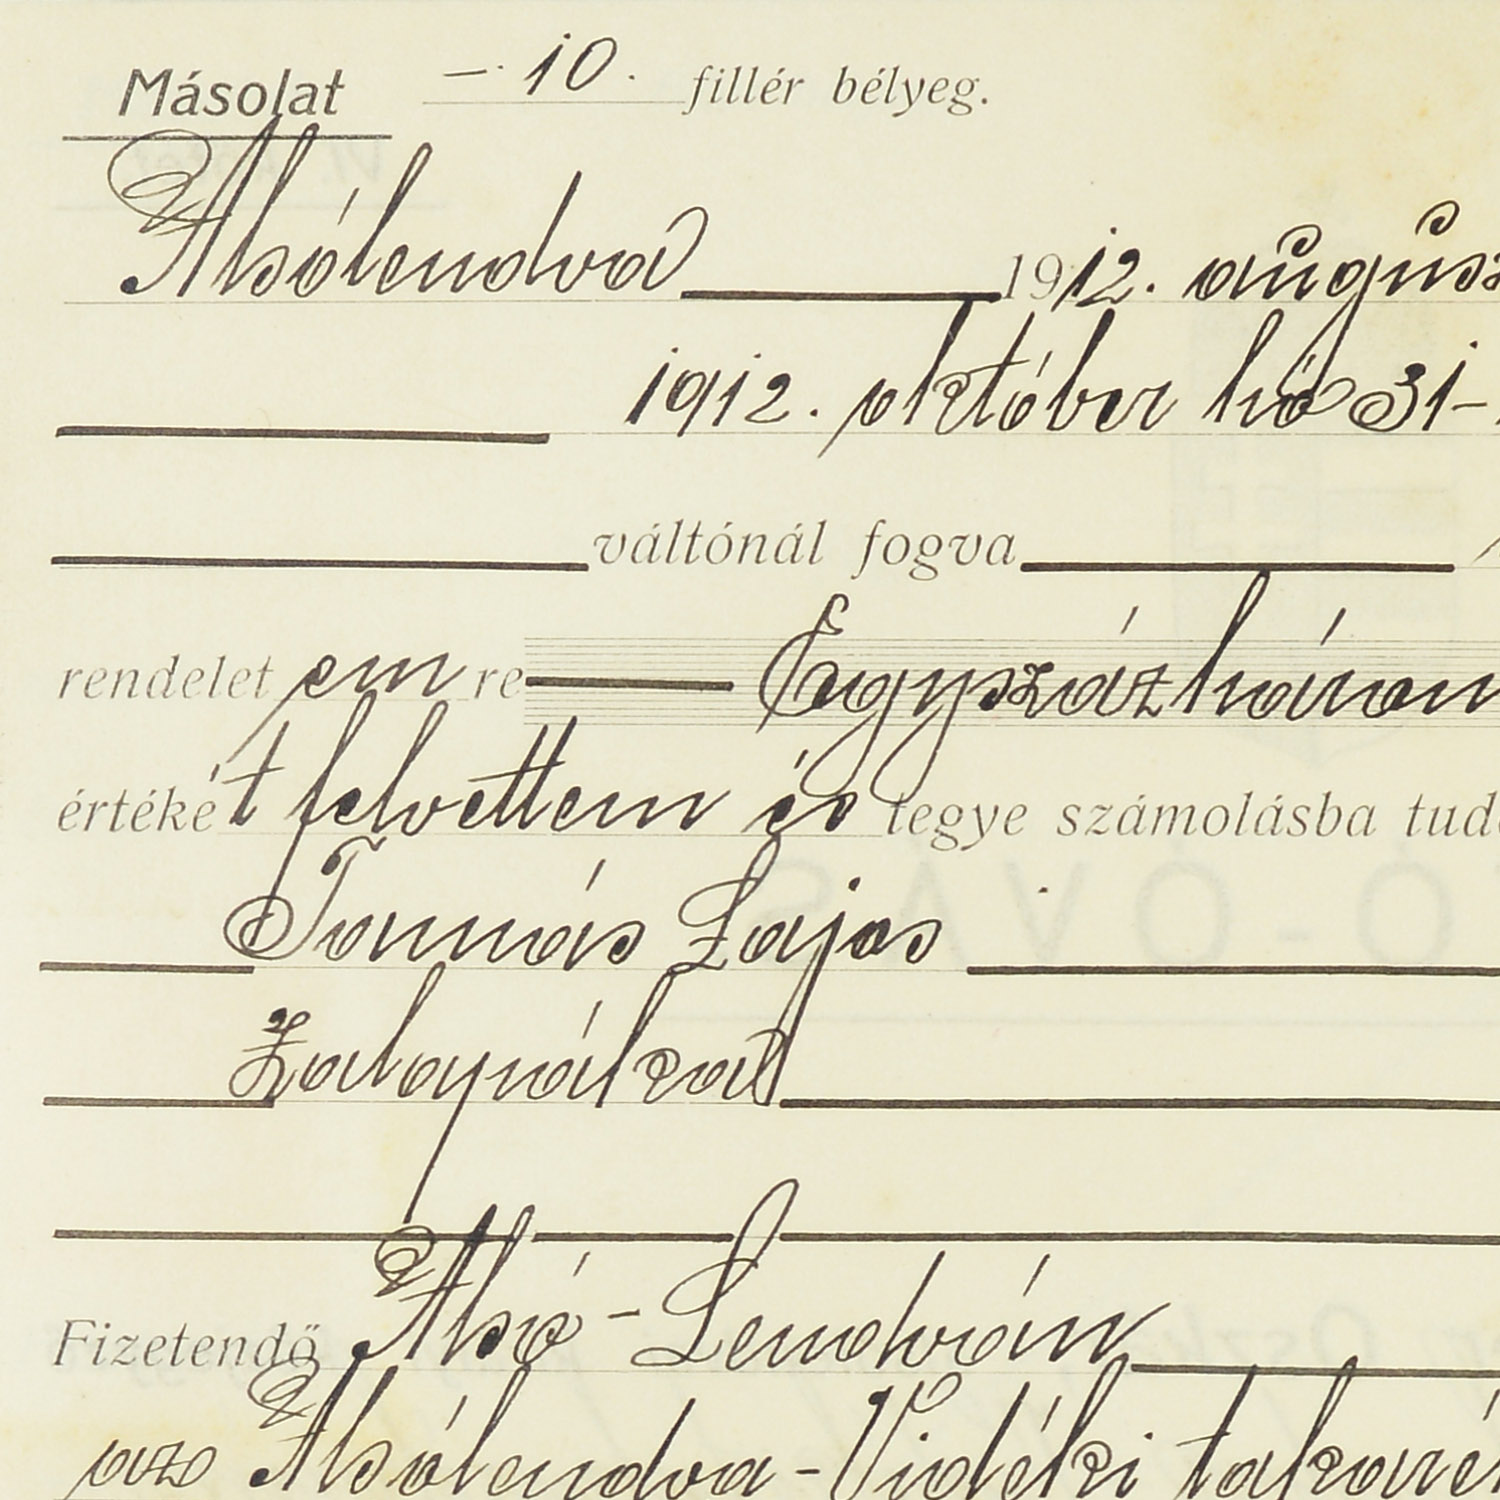 Másolat – 10. fillér bélyeg.
Alsólendva 1912. augusz
1912. október hó 31-
váltónál fogva
rendelet em re Egyszázhárom
értéké t felvettem és tegye számolásba tud
Tamás Lajos
Zalapálfa
Fizetendő Alsó-Lendván
az Alsólendva-Vidéki takaré